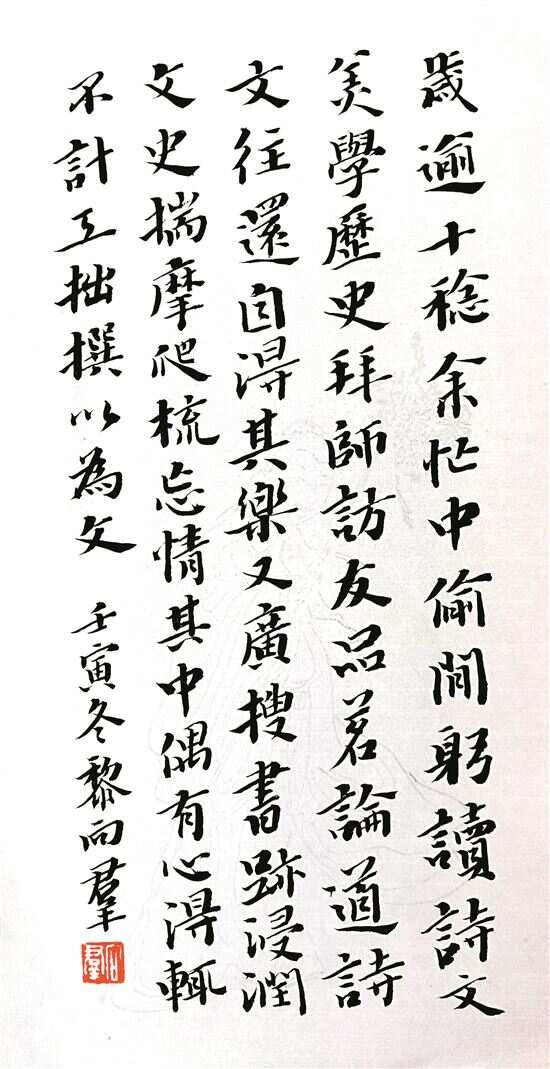 歲逾十稔余忙中偷閒躬讀詩文
美學歷史拜師訪友品茗論道詩
文往還自得其樂又廣搜書跡浸潤
文史揣摩爬梳忘情其中偶有心得輒
不計工拙撰以為文
壬寅冬黎向羣
向羣